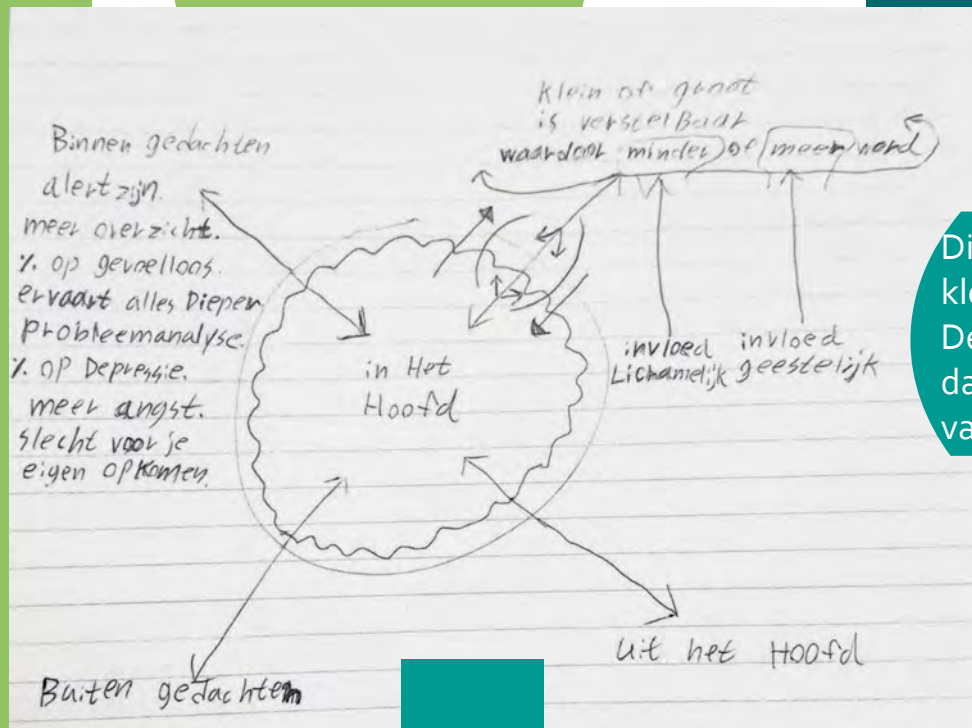 Binnen gedachten
alert zijn.
meer overzicht.
% op gevoelloos.
ervaart alles Dieper
Probleemanalyse.
% op Depressie.
meer angst.
slecht voor je
eigen opkomen.
klein of groot
is verstelBaar
waardoor minder of meer word
in Het
Hoofd
invloed
Lichamelijk
invloed
geestelijk
Buiten gedachten
uit het Hoofd
Di
kle
De
da
va